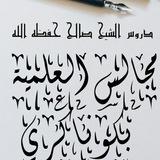 دروس الشيخ صالح حفظه الله
مجالس العلمية
بلونا كري